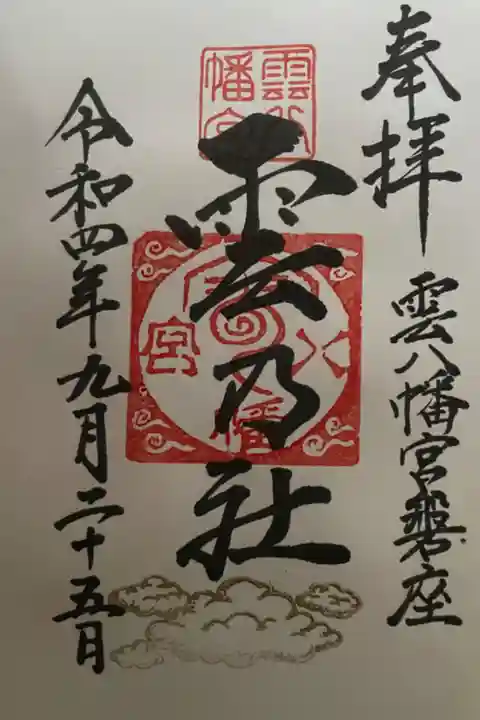 奉拝
雲八幡宮磐座
雲八幡宮
雲乃社
八幡宮
令和四年九月二十五日